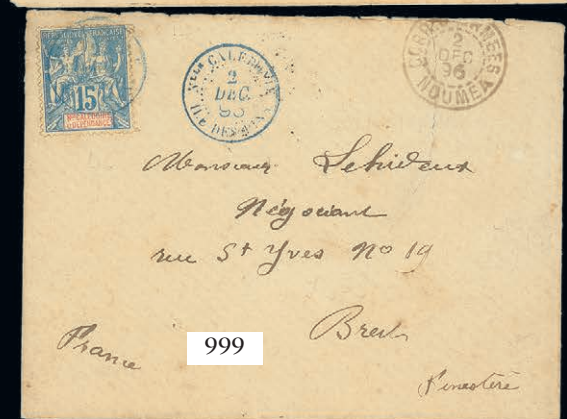 RÉPUBLIQUE FRANÇAISE
15
NLLE CALÉDONIE
ET DÉPENDANCES
NLLE CALEDONIE
2
DEC
ILE DES PINS
CORR. D'ARMEES
2
DEC
96
NOUMEA
Monsieur Lehideux
Négociant
rue St Yves No 19
Brest
France
999
Finestère